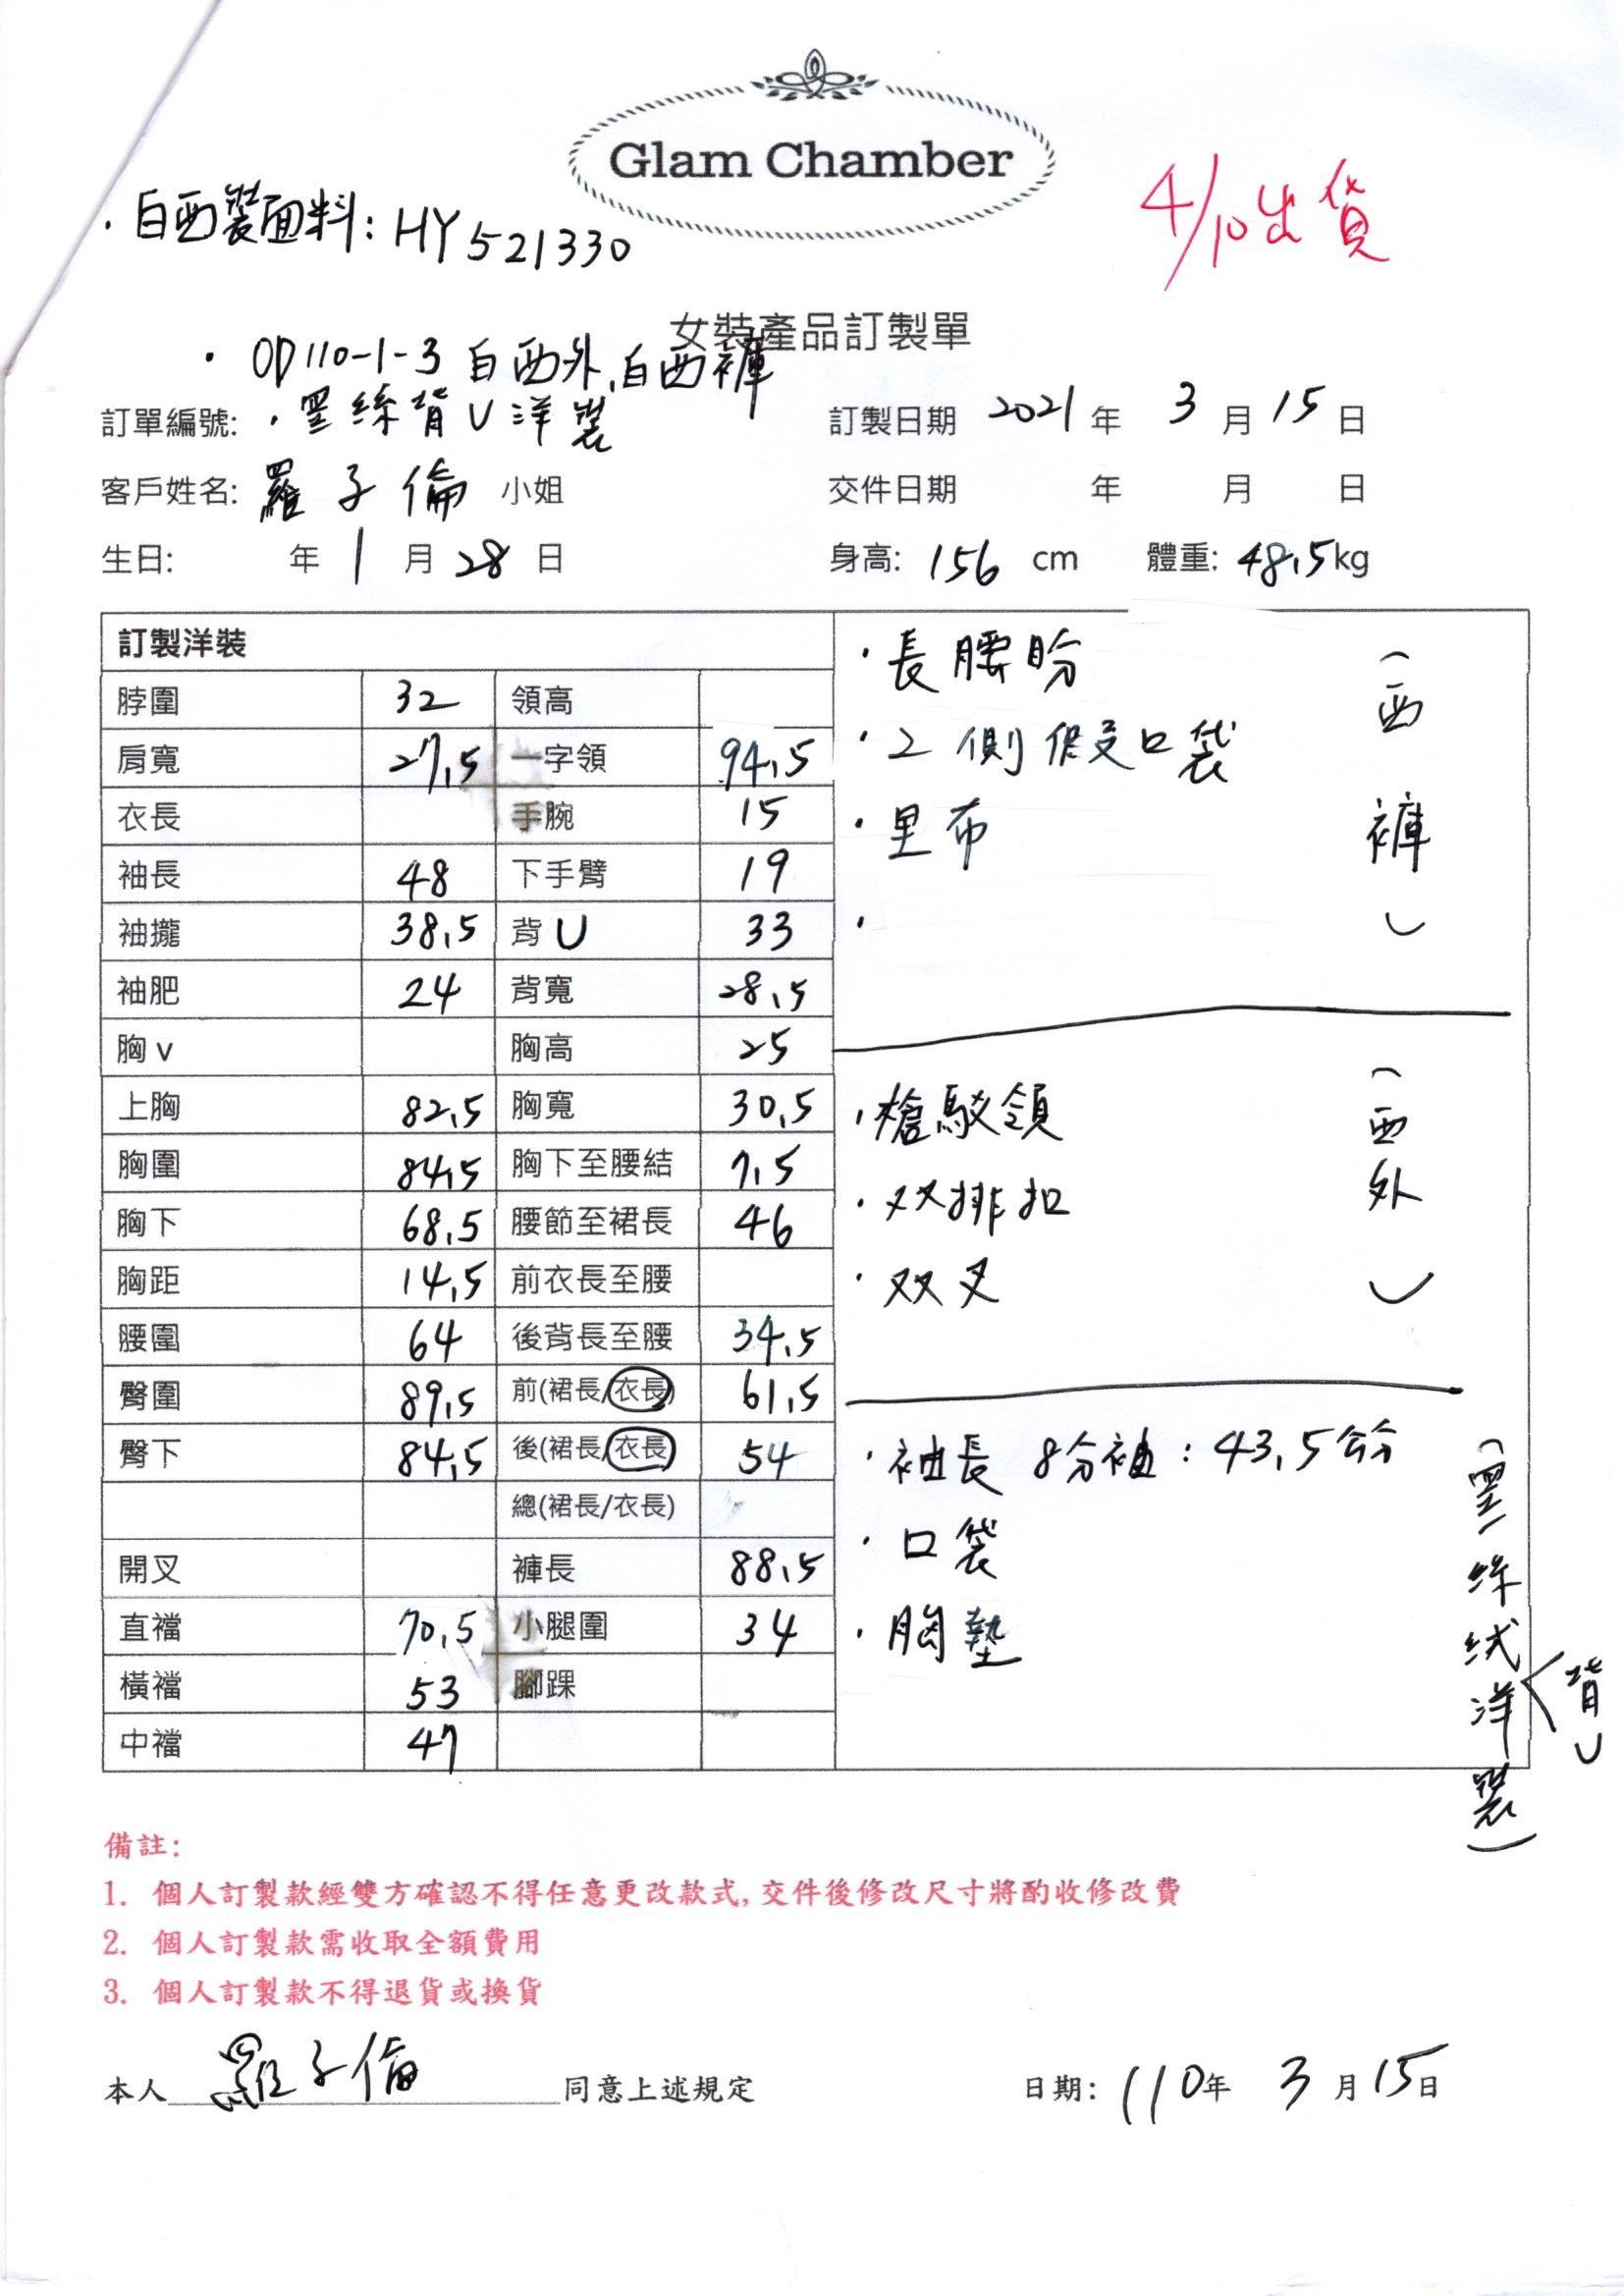 Glam Chamber
4/10出貨
·白西裝面料:HY521330
女裝產品訂製單
·OD110-1-3 白西外,白西褲
訂單編號: ·墨絲背U洋裝 訂製日期 2021 年 3 月 15 日
客戶姓名: 羅子倫 小姐 交件日期 年 月 日
生日: 年 1 月 28 日 身高: 156 cm 體重: 48.5 kg
訂製洋裝
脖圍 32 領高
肩寬 27.5 一字領 94.5
衣長 手腕 15
袖長 48 下手臂 19
袖攏 38.5 背U 33
袖肥 24 背寬 28.5
胸v 胸高 25
上胸 82.5 胸寬 30.5
胸圍 84.5 胸下至腰結 7.5
胸下 68.5 腰節至裙長 46
胸距 14.5 前衣長至腰
腰圍 64 後背長至腰 34.5
臀圍 89.5 前(裙長/衣長) 61.5
臀下 84.5 後(裙長/衣長) 54
總(裙長/衣長)
開叉 褲長 88.5
直襠 70.5 小腿圍 34
橫襠 53 腳踝
中襠 47
·長腰
·2側假口袋
·里布
·
(西褲)
·槍駁領
·双排扣
·双叉
(西外)
·袖長 8分袖:43.5公分
·口袋
·胸墊
(墨絲絨洋裝)
背U
備註:
1. 個人訂製款經雙方確認不得任意更改款式,交件後修改尺寸將酌收修改費
2. 個人訂製款需收取全額費用
3. 個人訂製款不得退貨或換貨
本人 羅子倫 同意上述規定 日期: 110年 3 月 15日